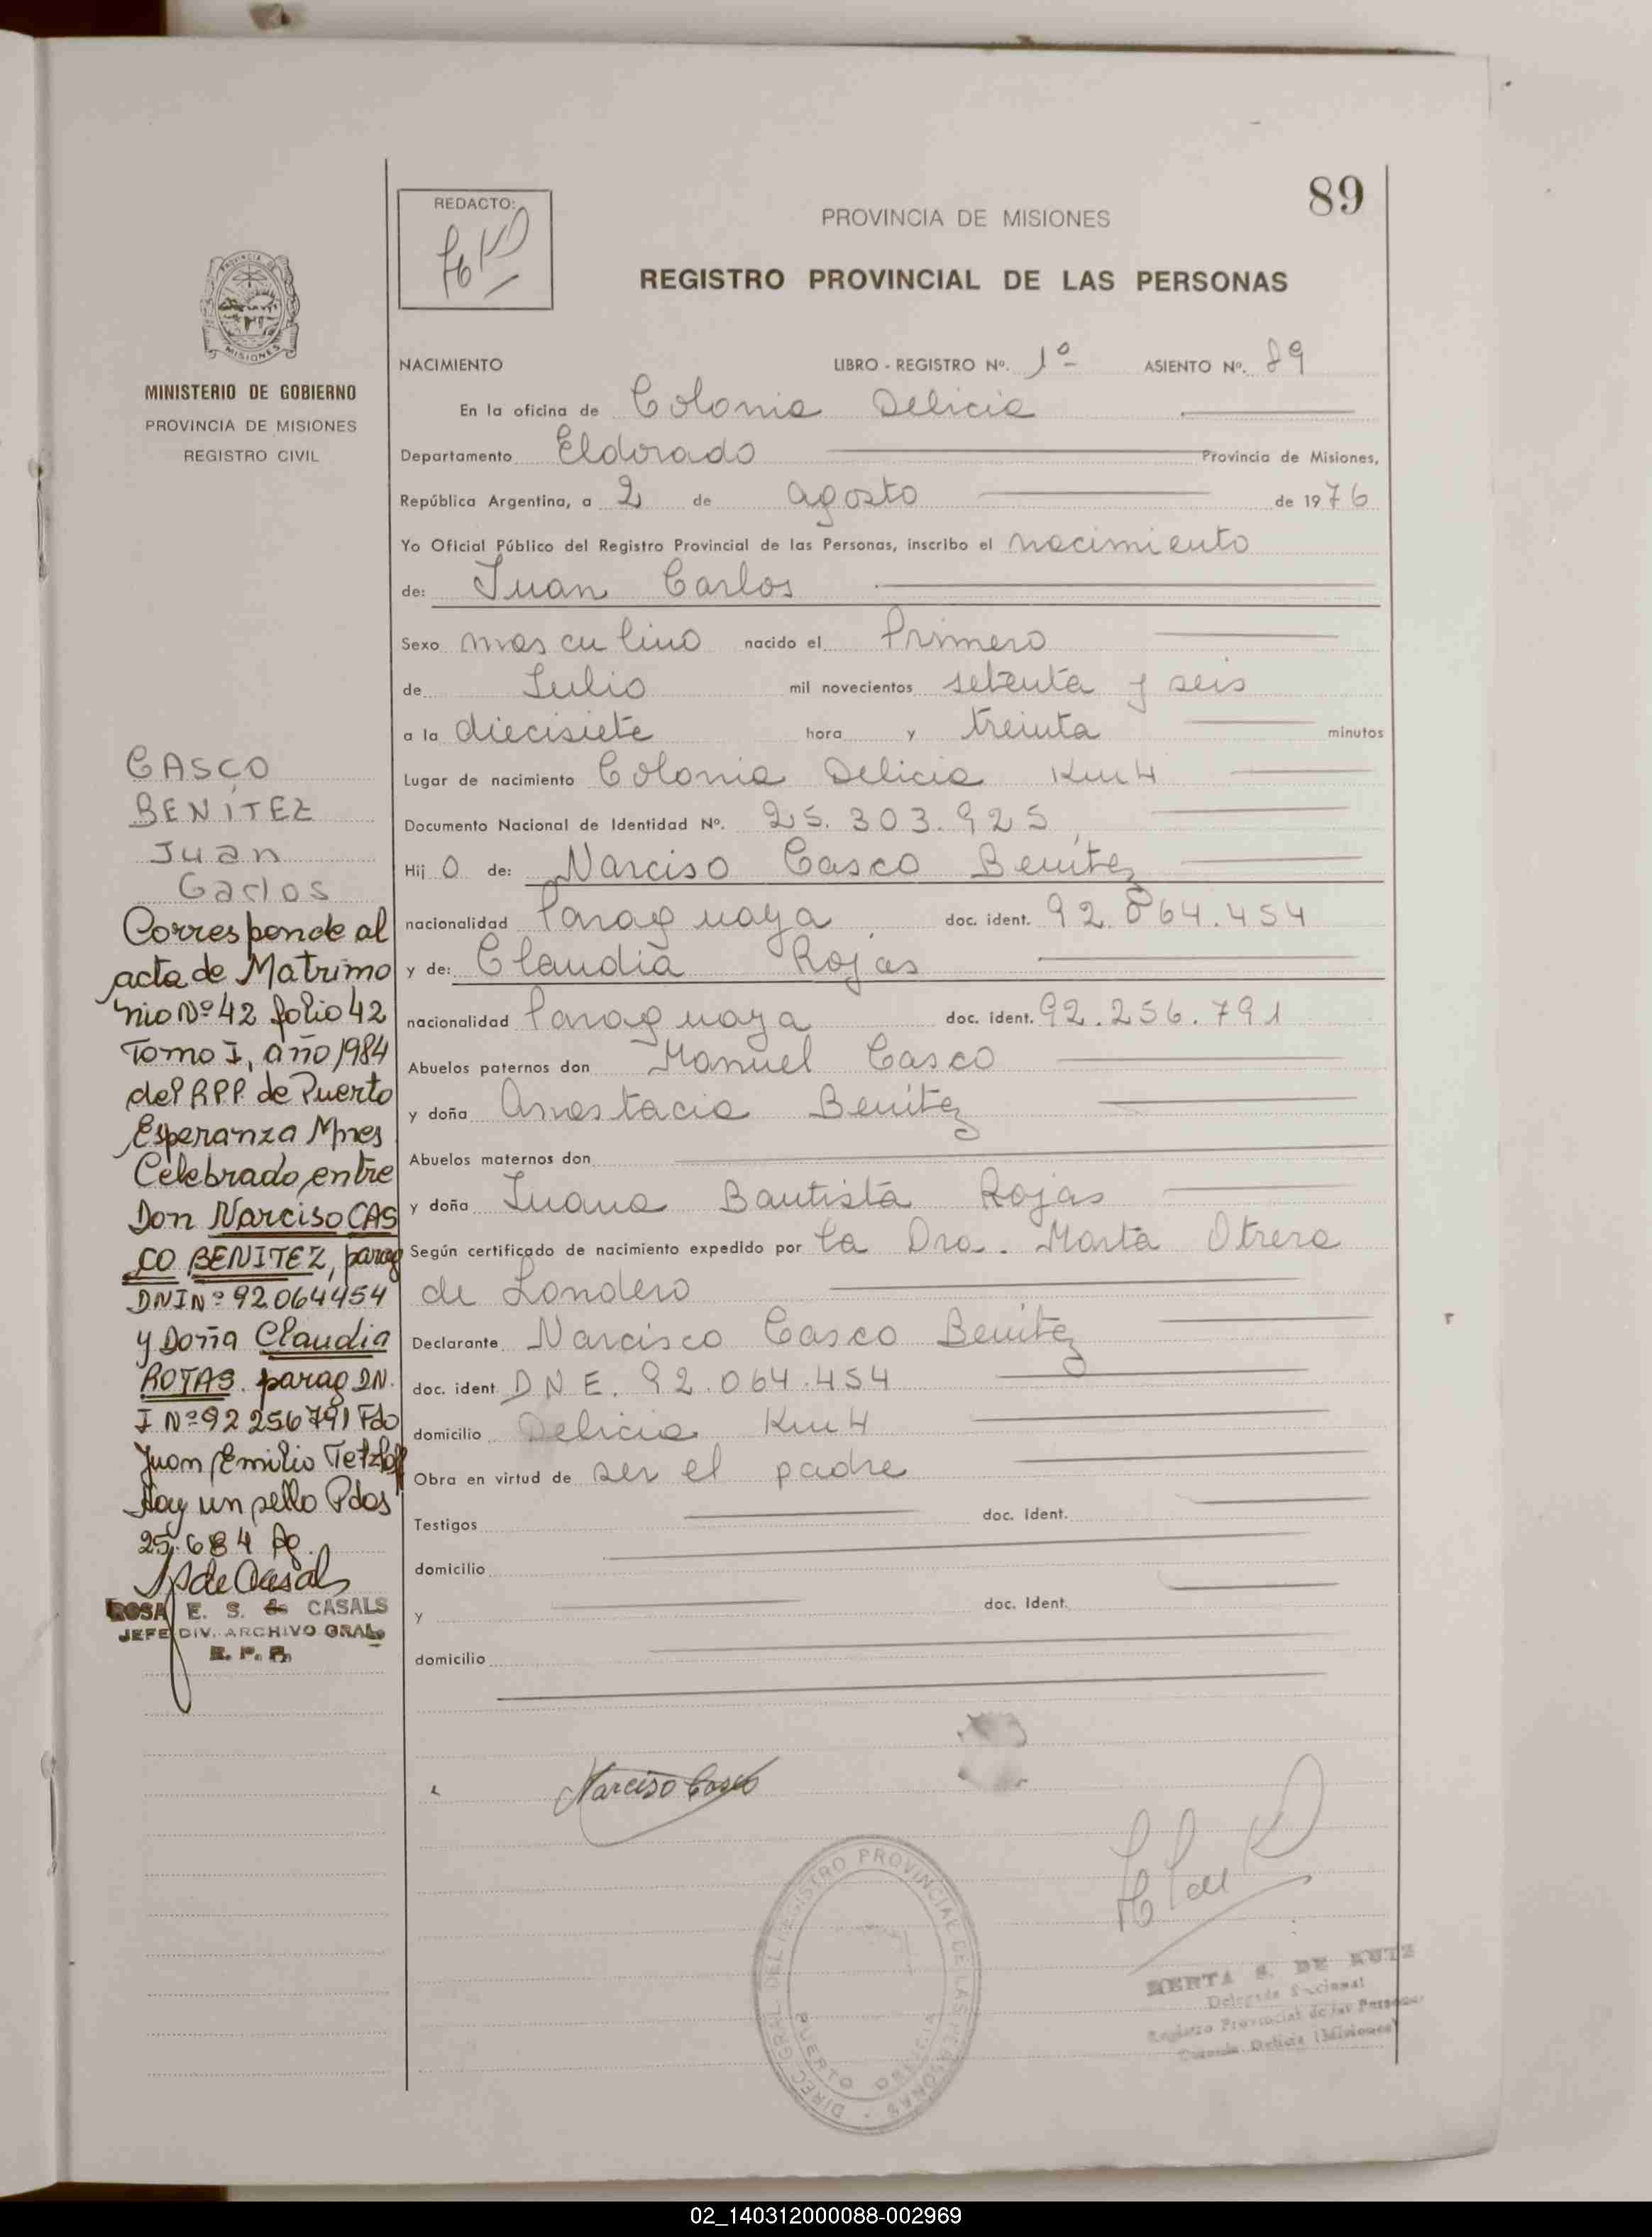 89
REDACTO:
PROVINCIA DE MISIONES
REGISTRO PROVINCIAL DE LAS PERSONAS
MISIONES
MINISTERIO DE GOBIERNO
PROVINCIA DE MISIONES
REGISTRO CIVIL
NACIMIENTO LIBRO - REGISTRO Nº. 1º ASIENTO Nº. 89
En la oficina de Colonia Delicia
Departamento Eldorado Provincia de Misiones,
República Argentina, a 2 de agosto de 1976
Yo Oficial Público del Registro Provincial de las Personas, inscribo el nacimiento
de: Juan Carlos
Sexo masculino nacido el Primero
de Julio mil novecientos setenta y seis
a la diecisiete hora y treinta minutos
Lugar de nacimiento Colonia Delicia Km 4
Documento Nacional de Identidad Nº. 25.303.925
Hij o de: Narciso Casco Benítez
nacionalidad Paraguaya doc. ident. 92.064.454
y de: Claudia Rojas
nacionalidad Paraguaya doc. ident. 92.256.791
Abuelos paternos don Manuel Casco
y doña Anastacia Benítez
Abuelos maternos don
y doña Juana Bautista Rojas
Según certificado de nacimiento expedido por la Dra. Marta Otrera
de Londero
Declarante Narcisco Casco Benítez
doc. ident D N E. 92.064.454
domicilio Delicia Km 4
Obra en virtud de ser el padre
Testigos doc. Ident.
domicilio
y doc. Ident.
domicilio
CASCO
BENÍTEZ
Juan
Carlos
Corresponde al
acta de Matrimo
nio Nº 42 folio 42
Tomo I, año 1984
del RPP. de Puerto
Esperanza Mnes
Celebrado entre
Don Narciso CAS
CO BENITEZ, parag
DNI Nº 92064454
y Doña Claudia
ROJAS parag DN.
I Nº 92256791 Fdo
Juan Emilio Tetzlaff
Hay un sello Pdos
25.6.84
ROSA E. S. de CASALS
JEFE DIV. ARCHIVO GRAL.
R. P. P.
Narciso Casco
DIREC. GRAL. DEL REGISTRO PROVINCIAL DE LAS PERSONAS
PUERTO DELICIA
BERTA S. DE KUTZ
Delegada Seccional
Registro Provincial de las Personas
Delicia (Misiones)
02_140312000088-002969